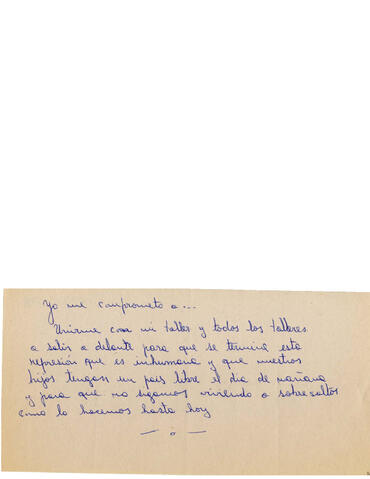 Yo me comprometo a...
Unirme con mi taller y todos los talleres
a salir a delante para que se termine esta
represión que es inhumana y que nuestros
hijos tengan un país libre el día de mañana
y para que no sigamos viviendo a sobresaltos
como lo hacemos hasta hoy
— o —